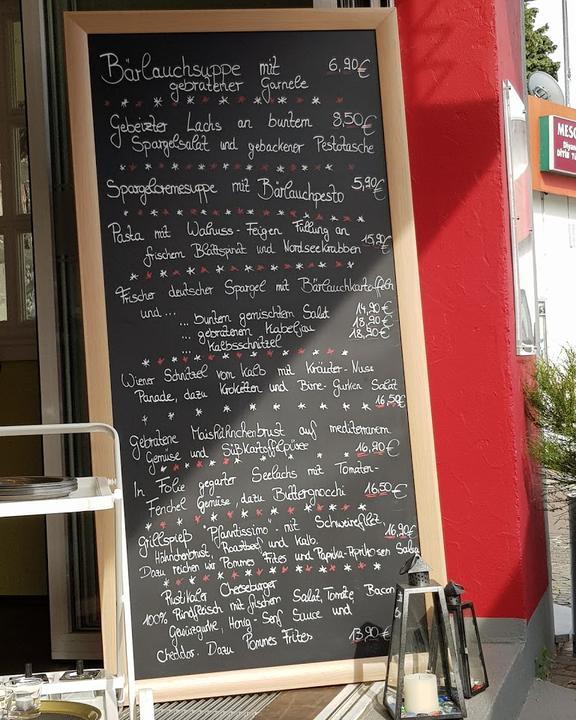 Bärlauchsuppe mit 6,90€
gebratener Garnele
Gebeizter Lachs an buntem 8,50€
Spargelsalat und gebackener Pestotasche
Spargelcremesuppe mit Bärlauchpesto 5,90€
Pasta mit Walnuss-Feigen Füllung an
frischem Blattspinat und Nordseekrabben 15,90€
Frischer deutscher Spargel mit Bärlauchkartoffeln
und ...
... buntem gemischtem Salat 14,90€
... gebratenem Kabeljau 18,90€
... Kalbsschnitzel 18,90€
Wiener Schnitzel vom Kalb mit Kräuter-Nuss
Panade, dazu Kroketten und Birne-Gurken Salat
16,50€
Gebratene Maishähnchenbrust auf mediterranem
Gemüse und Süßkartoffelpüree 16,90€
In Folie gegarter Seelachs mit Tomaten-
Fenchel Gemüse dazu Buttergnocchi 16,50€
Grillspieß "Pfiantissimo" mit Schweinefilet
Hähnchenbrust, Roastbeef und Kalb. 16,90€
Dazu reichen wir Pommes Frites und Paprika-Aprikosen Salsa
Rustikaler Cheeseburger
100% Rindfleisch mit frischem Salat, Tomate, Bacon
Gewürzgurke, Honig-Senf Sauce und
Cheddar. Dazu Pommes Frites 13,90€